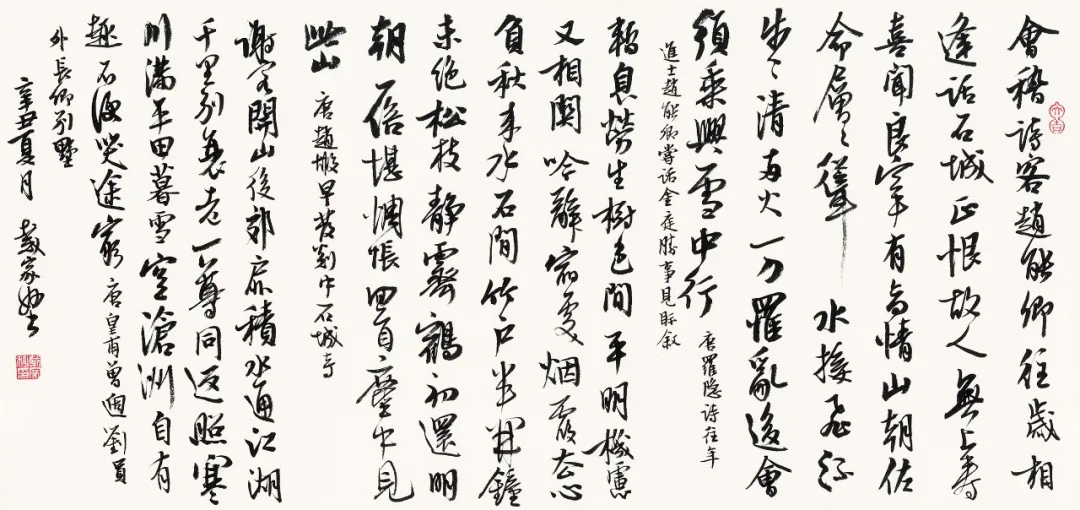 會稽詩客趙能卿往歲相
逢話石城正恨故人無上壽
喜聞良宰有高情山朝佐
命層々聳水接飛流
步々清兩火一刀罹亂後會
須乘興雪中行 唐羅隱詩往年
進士趙能卿嘗話金庭勝事見示叙
暫息勞生樹色間平明機慮
又相關吟辭宿處烟霞去心
負秋來水石間竹户半開鐘
未絕松枝靜霽鶴初還明
朝一倍堪惆悵回首塵中見
此山 唐趙嘏早發剡中石城寺
謝客開山後郊扉積水通江湖
千里別衰老一尊同返照寒
川滿平田暮雪空滄洲自有
趣不復哭途窮 唐皇甫曾過劉員
外長卿別墅
辛丑夏月 戴家妙